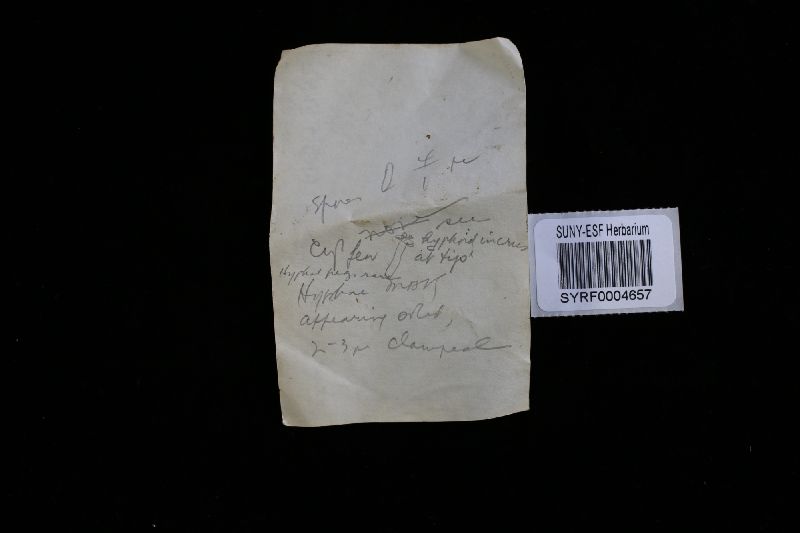 Spores 4/1 µ
see
Cys few hyphoid incrus
at tip
Hyphal pegs rare
Hyphae many
appearing
2-3 µ clamped
SUNY-ESF Herbarium
SYRF0004657